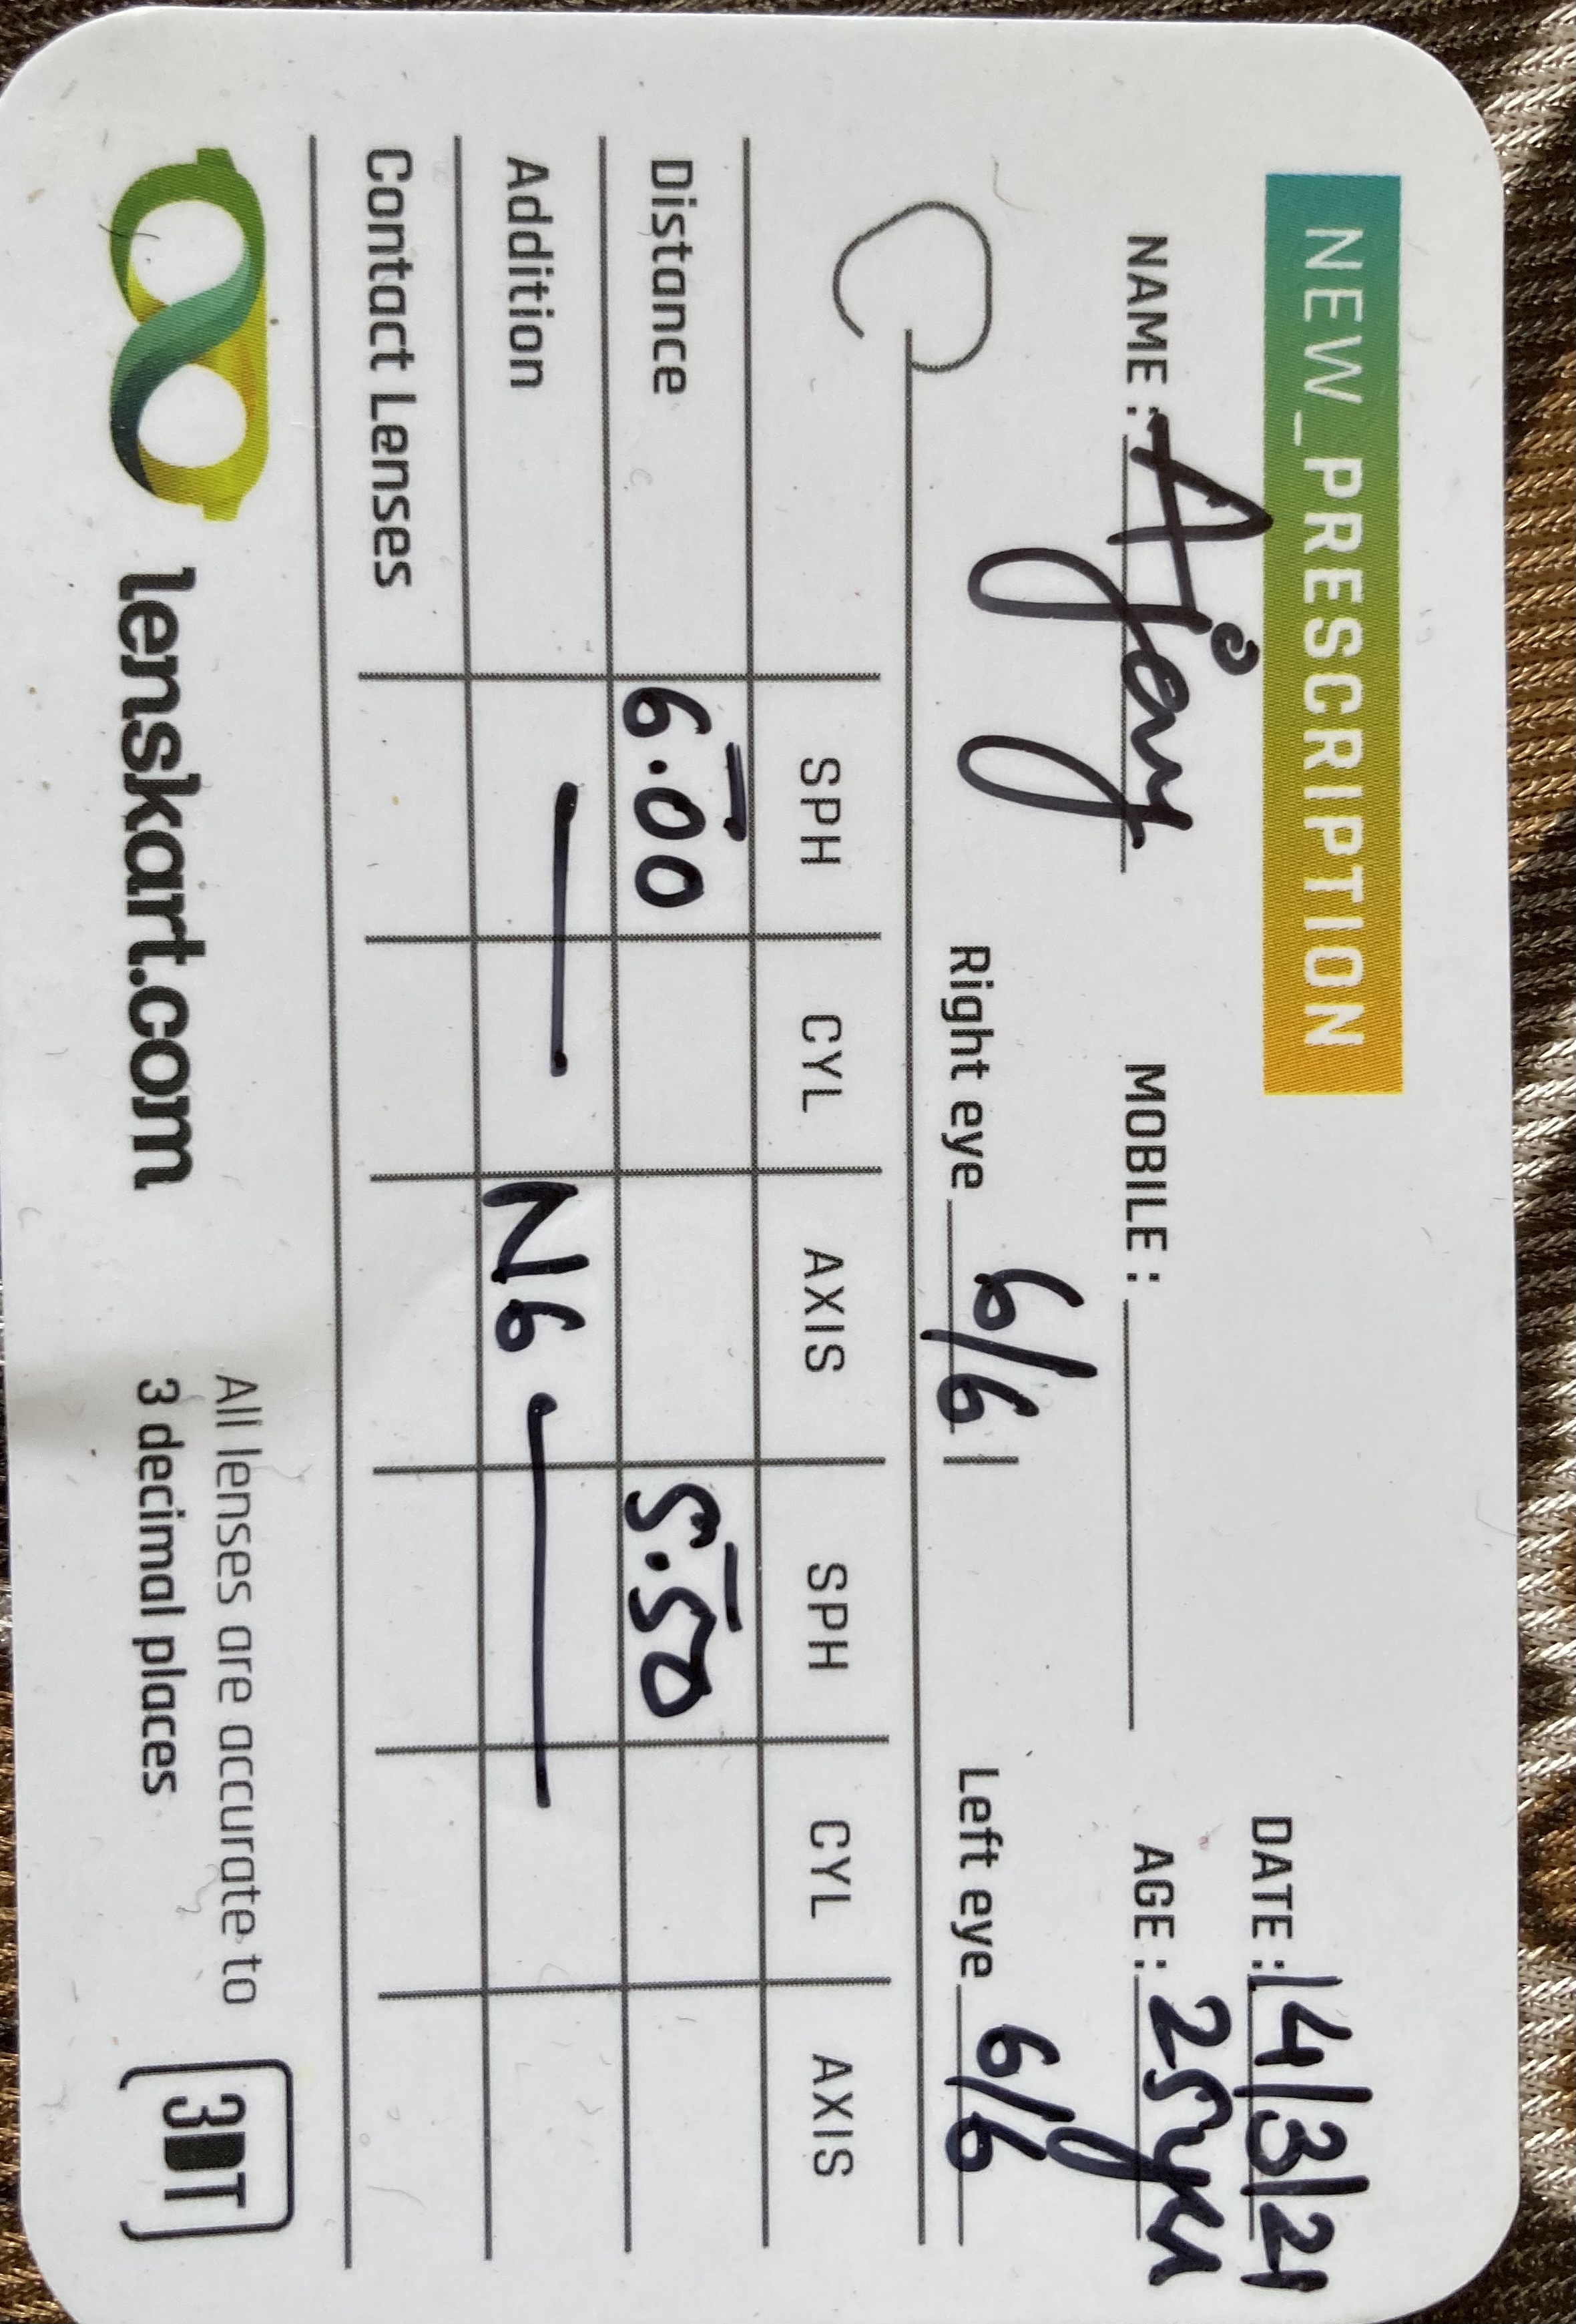 NEW_PRESCRIPTION
DATE : 14/3/21
NAME : Ajay MOBILE : AGE : 25yrs
Right eye 6/6 Left eye 6/6
SPH CYL AXIS SPH CYL AXIS
Distance 6.00 5.50
Addition — N6 —
Contact Lenses
lenskart.com
All lenses are accurate to
3 decimal places
3DT